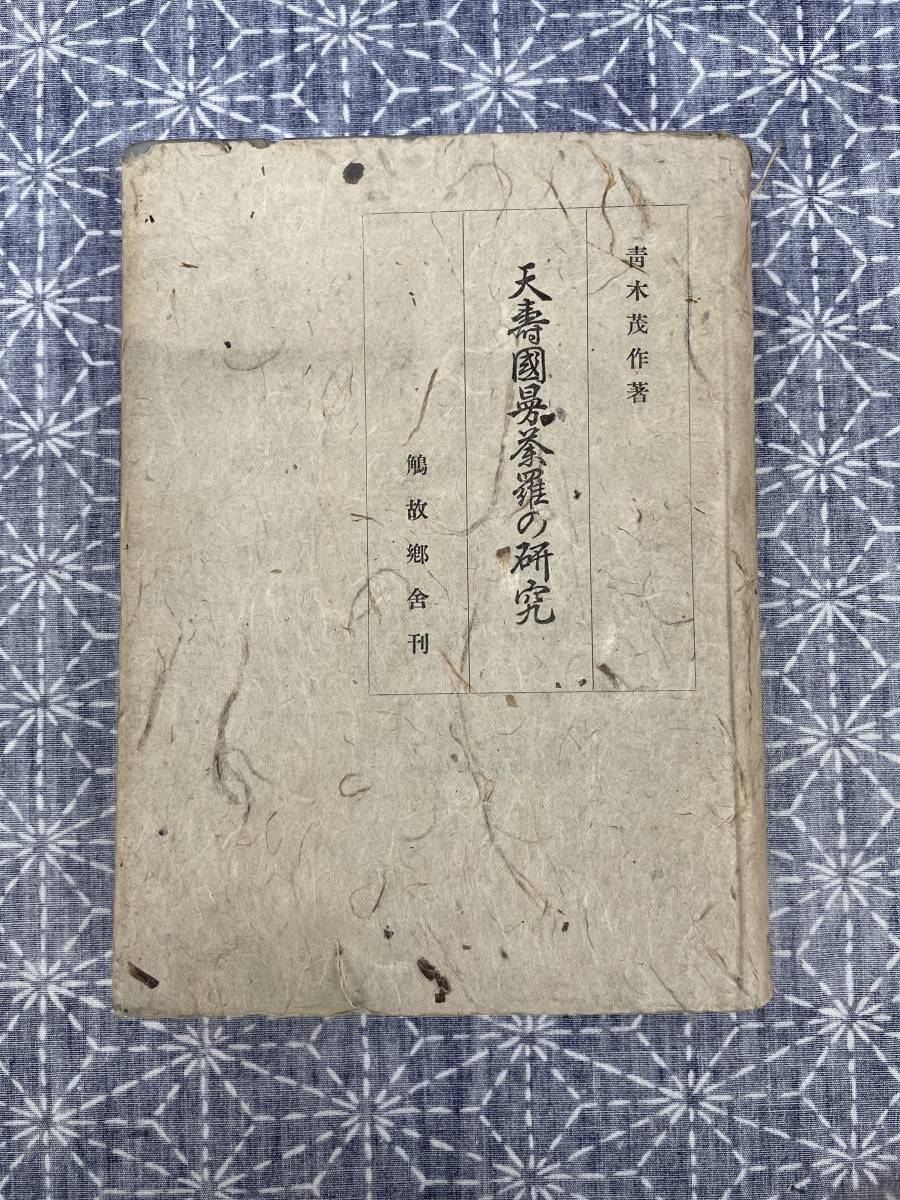 青木茂作著
天壽國曼荼羅の研究
鵤故鄕舎刊